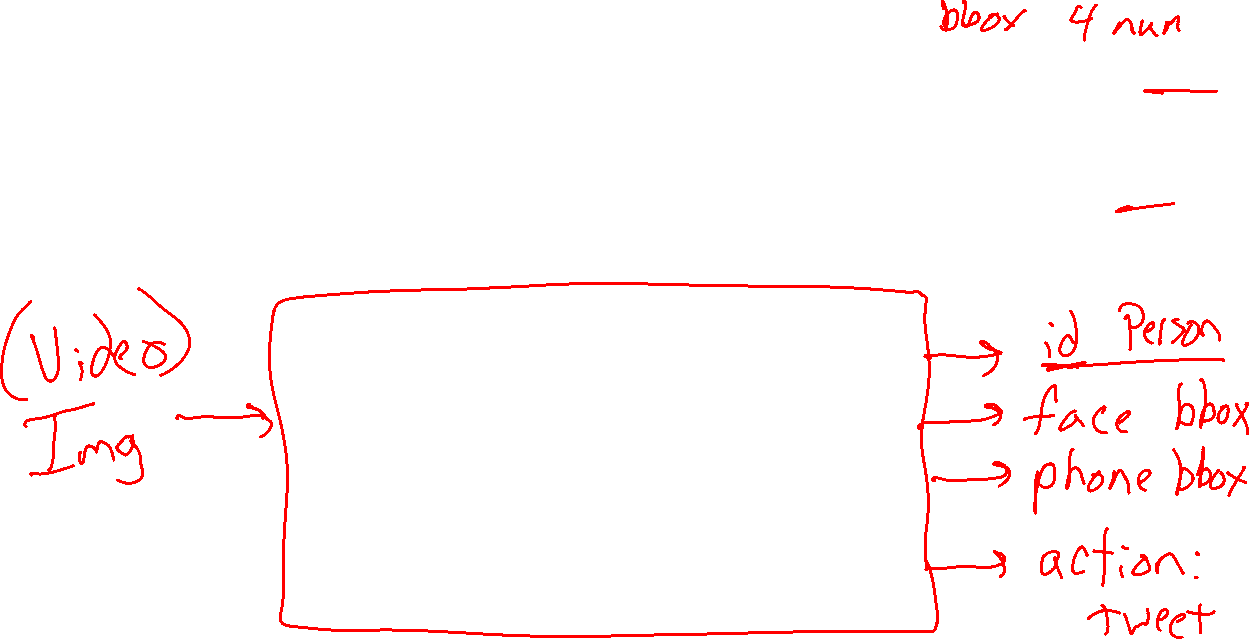 bbox 4 num
(Video)
Img
id Person
face bbox
phone bbox
action:
tweet